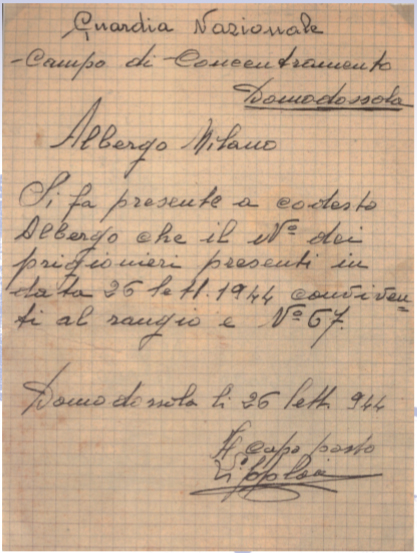 Guardia Nazionale
-Campo di Concentramento
Domodossola
Albergo Milano
Si fa presente a codesto
Albergo che il Nº dei
prigionieri presenti in
data 26 Sett. 1944 conviven-
ti al rangio e Nº 67.
Domodossola li 26 Sett. 944
Il capo posto